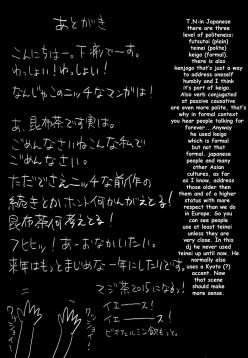 あとがき
こんにちはー。下庵でーす。
わっしょい！わっしょい！
なんじゃこのニッチなマンガは！
あ、昆布茶です実は。
ごめんなさいねこんな私で
ごめんなさい。
ただでさえニッチな前作の
続きとかホント何かんがえてる！
昆布茶何考えてる！
フヒヒッ！あーおなかいたい。
来年はもっとまじめな一年にしたいです。
マジ茶2015になるっ！
イエーース！
イエーース！
ビオフェルミン飲もっと。
ワッショイ！
ワッショイ！
T.N:in Japanese
there are three
level of politeness:
futsutai (plein)
teinei (polite)
keigo (formal).
there is also
kenjogo that's just a way
to address oneself
humbly and I think
it's part of keigo.
Also verb conjugated
at passive causative
are even more polite, that's
why in formal context
you hear people talking for
forever...Anyway
he used keigo
which is formal
but not that
formal. japanese
people and many
other Asian
cultures, as far
as I know, address
those older then
them and of a higher
status with more
respect than we do
in Europe. So you
can see people
use at least teinei
unless they are
very close. In this
dj he never used
teinei up until now. He
normally also
uses a Kyoto (?)
accent. Now
that scene
should make
more sense.